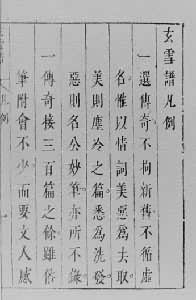 玄雪譜凡例
一選傳奇不拘新舊不循虛
名惟以情詞美惡爲去取
美則塵冷之篇悉爲洗發
惡則名公妙筆亦所不錄
一傳奇接三百篇之餘雖偕
筆附會不少而要文人感
凡例